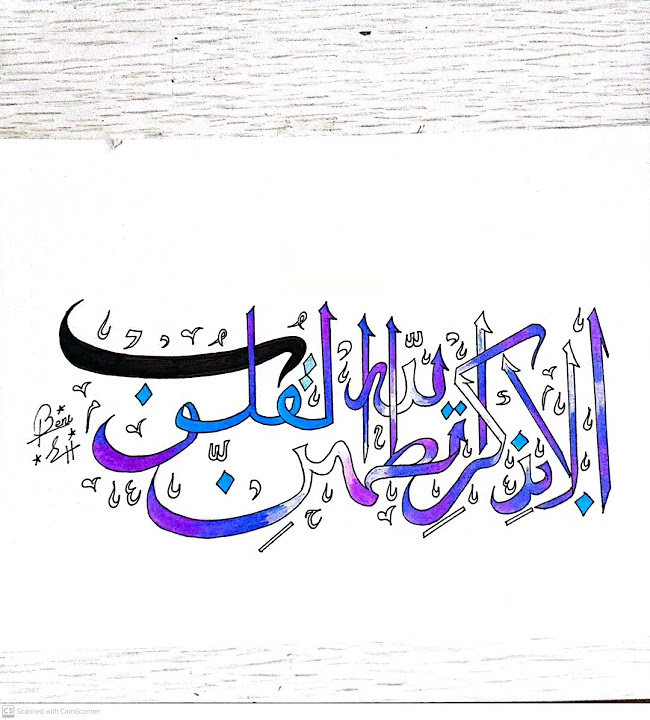 ألا بذكر الله تطمئن القلوب
Beni
SH
CS Scanned with CamScanner